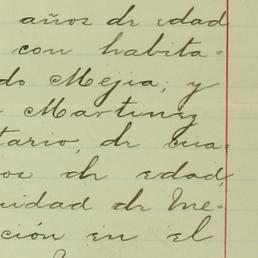 años de edad
con habita-
do Mejia; y
Martinez
tario, de cua-
os de edad,
uidad de Me-
ción en el